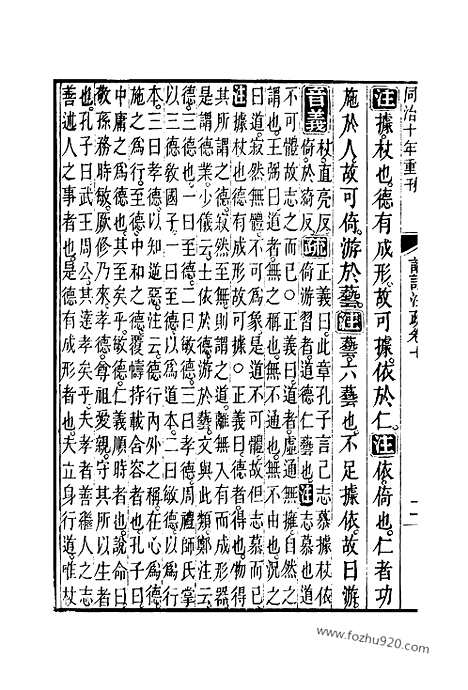 同治十年重刊
論語注疏卷七
二
注據杖也。德有成形。故可據。依於仁。注依倚也。仁者功
施於人。故可倚。游於藝。注藝六藝也。不足據依。故曰游。
音義 杖。直亮反 倚。於綺反 疏 正義曰。此章孔子言己志慕據杖依
倚游習者。道德仁藝也。注志慕也道
不可體故志之而已○正義曰。道者。虛通無擁。自然之
謂也。王弼曰。道者。無之稱也。無不通也。無不由也。況之
曰道。寂然無體。不可為象。是道不可體。故但志慕而已。
注據杖也德有成形故可據○正義曰。德者得也。物得
其所謂之德。寂然至無則謂之道。離無入有而成形器。
是謂德業。少儀云。士依於德。游於藝。文與此類。鄭注云。
德。三德也。一曰至德。二曰敏德。三曰孝德。周禮師氏掌
以三德教國子。一曰至德。以為道本。二曰敏德。以為行
本。三曰孝德。以知逆惡。注云。德行內外之稱。在心為德。
施之為行。至德。中和之德。覆燾持載含容者也。孔子曰。
中庸之為德也。其至矣乎。敏德。仁義順時者也。說命曰。
敬孫務時敏。厥修乃來。孝德。尊祖愛親。守其所以生者
也。孔子曰。武王周公。其達孝矣乎。夫孝者。善繼人之志。
善述人之事者也。是德有成形者也。夫立身行道。唯杖
www.fozhu920.com